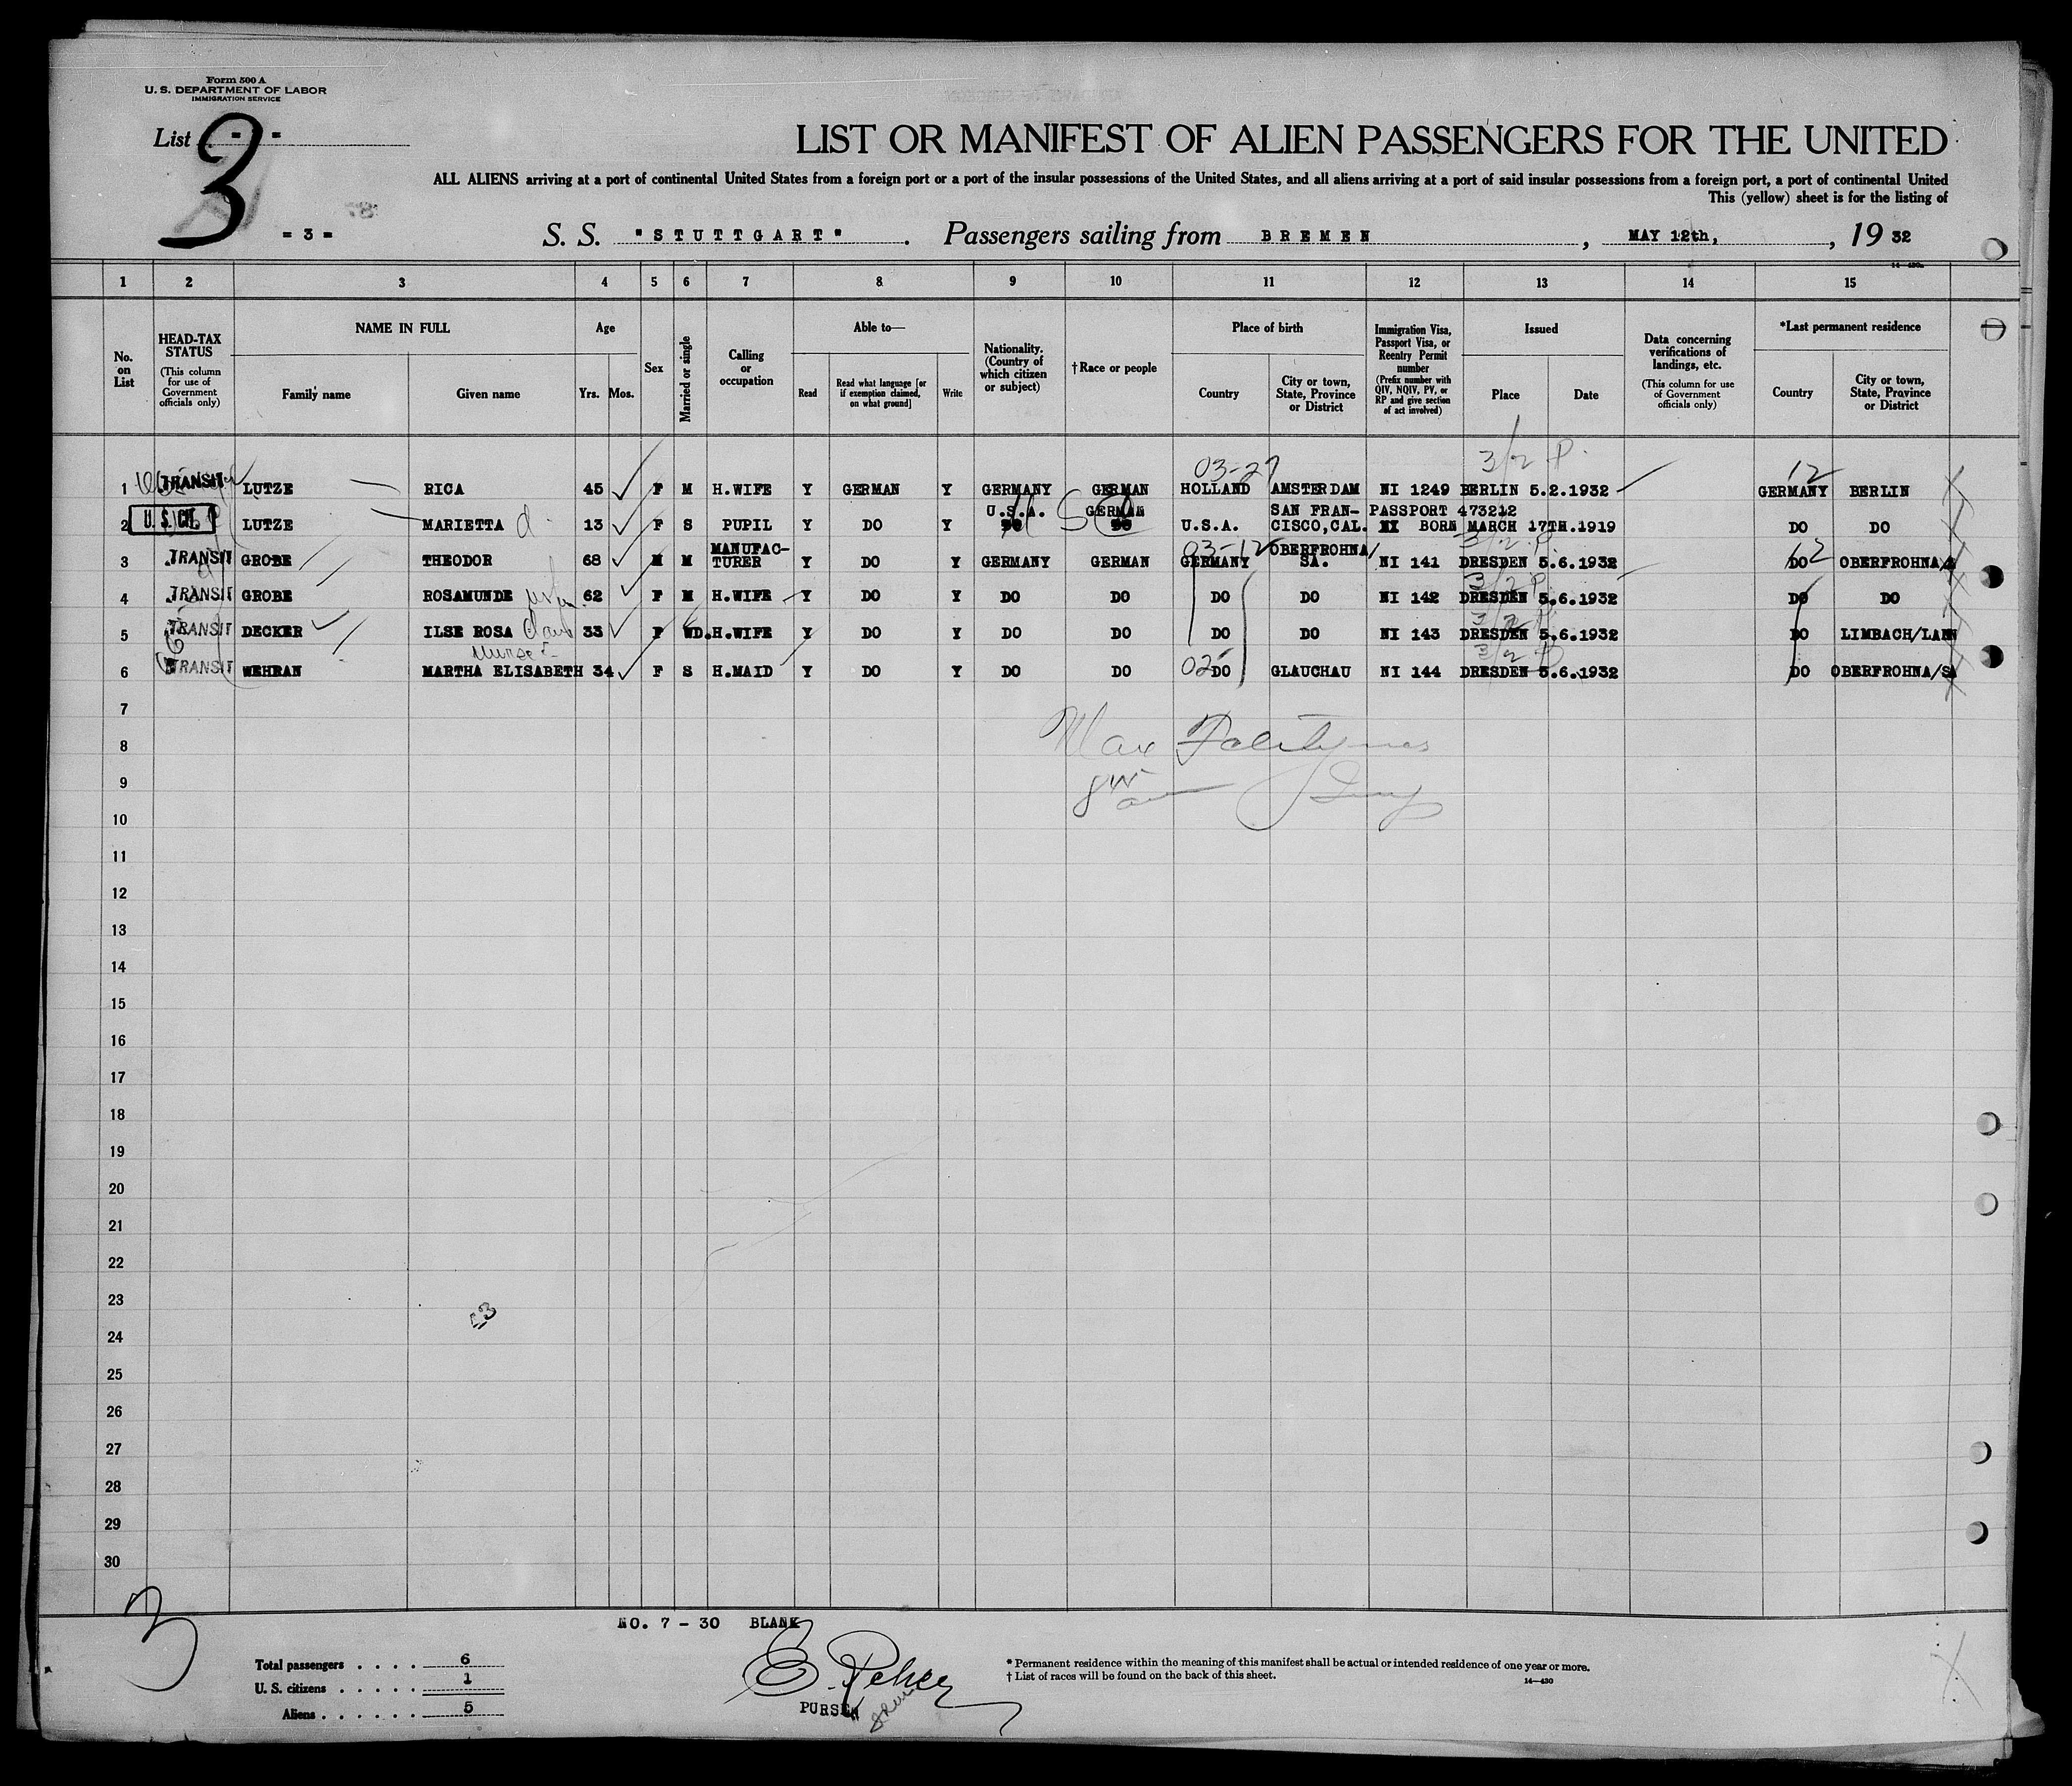 Form 500 A
U. S. DEPARTMENT OF LABOR
IMMIGRATION SERVICE
List - 3 -
3
LIST OR MANIFEST OF ALIEN PASSENGERS FOR THE UNITED
ALL ALIENS arriving at a port of continental United States from a foreign port or a port of the insular possessions of the United States, and all aliens arriving at a port of said insular possessions from a foreign port, a port of continental United
This (yellow) sheet is for the listing of
= 3 = S. S. "STUTTGART". Passengers sailing from BREMEN, MAY 12th, 1932
14—430a
1 2 3 4 5 6 7 8 9 10 11 12 13 14 15
No. on List
HEAD-TAX STATUS (This column for use of Government officials only)
NAME IN FULL Family name Given name
Age Yrs. Mos.
Sex
Married or single
Calling or occupation
Able to— Read Read what language [or if exemption claimed, on what ground] Write
Nationality. (Country of which citizen or subject)
†Race or people
Place of birth Country City or town, State, Province or District
Immigration Visa, Passport Visa, or Reentry Permit number (Prefix number with QIV, NQIV, PV, or RP and give section of act involved)
Issued Place Date
Data concerning verifications of landings, etc. (This column for use of Government officials only)
*Last permanent residence Country City or town, State, Province or District
03-27 3/2 P. 12
1 TRANSIT LUTZE RICA 45 F M H.WIFE Y GERMAN Y GERMANY GERMAN HOLLAND AMSTERDAM NI 1249 BERLIN 5.2.1932 GERMANY BERLIN
U.S.A. GERMAN SAN FRAN- PASSPORT 473212
2 U. S. CIT. LUTZE MARIETTA d. 13 F S PUPIL Y DO Y DO DO U.S.A. CISCO,CAL. NI BORN MARCH 17TH.1919 DO DO
MANUFAC- 03-12 OBERFROHNA/ 3/2 P.
3 TRANSIT GROBE THEODOR 68 M M TURER Y DO Y GERMANY GERMAN GERMANY SA. NI 141 DRESDEN 5.6.1932 DO 12 OBERFROHNA
3/2 P.
4 TRANSIT GROBE ROSAMUNDE wife 62 F M H.WIFE Y DO Y DO DO DO DO NI 142 DRESDEN 5.6.1932 DO DO
3/2 P.
5 TRANSIT DECKER ILSE ROSA dau 33 F WD. H.WIFE Y DO Y DO DO DO DO NI 143 DRESDEN 5.6.1932 DO LIMBACH/
nurse 3/2 P
6 TRANSIT WEHRAN MARTHA ELISABETH 34 F S H.MAID Y DO Y DO DO 02 DO GLAUCHAU NI 144 DRESDEN 5.6.1932 DO OBERFROHNA/SA
7
8 Max
9
10
11
12
13
14
15
16
17
18
19
20
21
22
23
23
24
25
26
27
28
29
30
3
NO. 7 - 30 BLANK
Total passengers . . . . 6
U. S. citizens . . . . . 1
Aliens . . . . . . 5
PURSER
* Permanent residence within the meaning of this manifest shall be actual or intended residence of one year or more.
† List of races will be found on the back of this sheet.
14—430